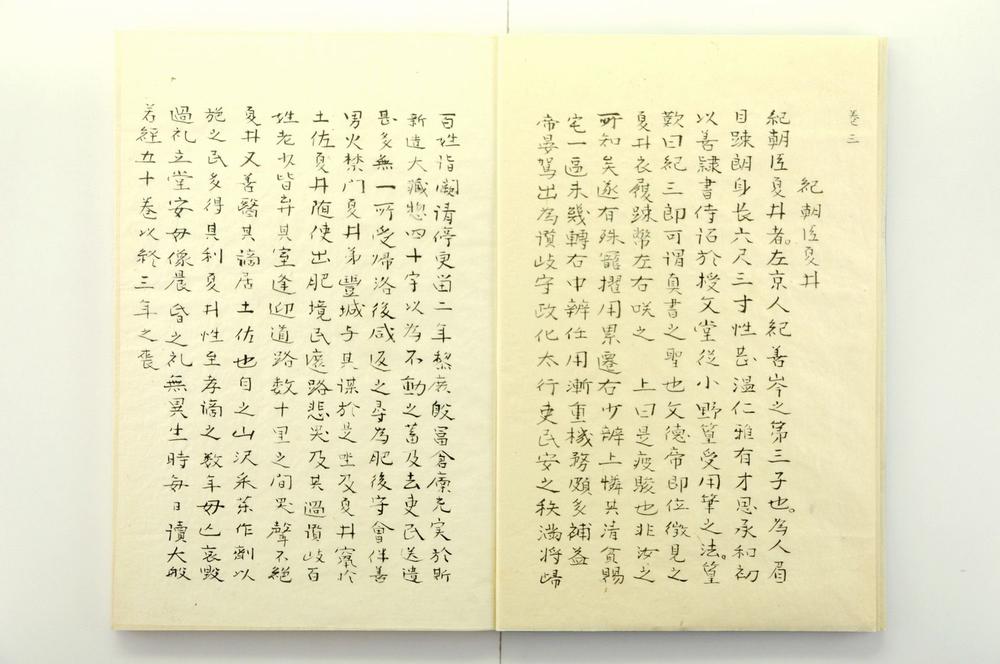 卷三
紀朝臣夏井
紀朝臣夏井者。左京人紀善岑之第三子也。為人眉
目踈朗身长六尺三寸性甚温仁雅有才思承和初
以善隷書侍诏於授文堂従小野篁受用筆之法。篁
歎曰紀三郎可谓真書之聖也文德帝即位徴見之
夏井衣履踈幣左右咲之　上曰是疲駿也非汝之
所知矣遂有殊寵擢用累遷右少辨上憐其清貧賜
宅一區未幾轉右中辨任用漸重機務頗多補益
帝晏駕出為讃岐守政化大行吏民安之秩满將帰
百姓诣闕请停更留二年黎庶殷富倉廩充実於所
新造大藏惣四十宇以為不動之蓄及去吏民送遺
甚多無一所受帰洛後咸返之尋為肥後守會伴善
男火禁门夏井弟豐城与其谋於是坐及夏井竄於
土佐夏井随使出肥境民遮路悲哭及其過讃岐百
姓老少皆弃其室逢迎道路数十里之间哭聲不絶
夏井又善醫其谪居土佐也自之山沢采薬作劑以
施之民多得其利夏井性至孝谪之数年母亡哀毀
過礼立堂安母像晨昏之礼無異生時每日讀大般
若經五十卷以終三年之喪